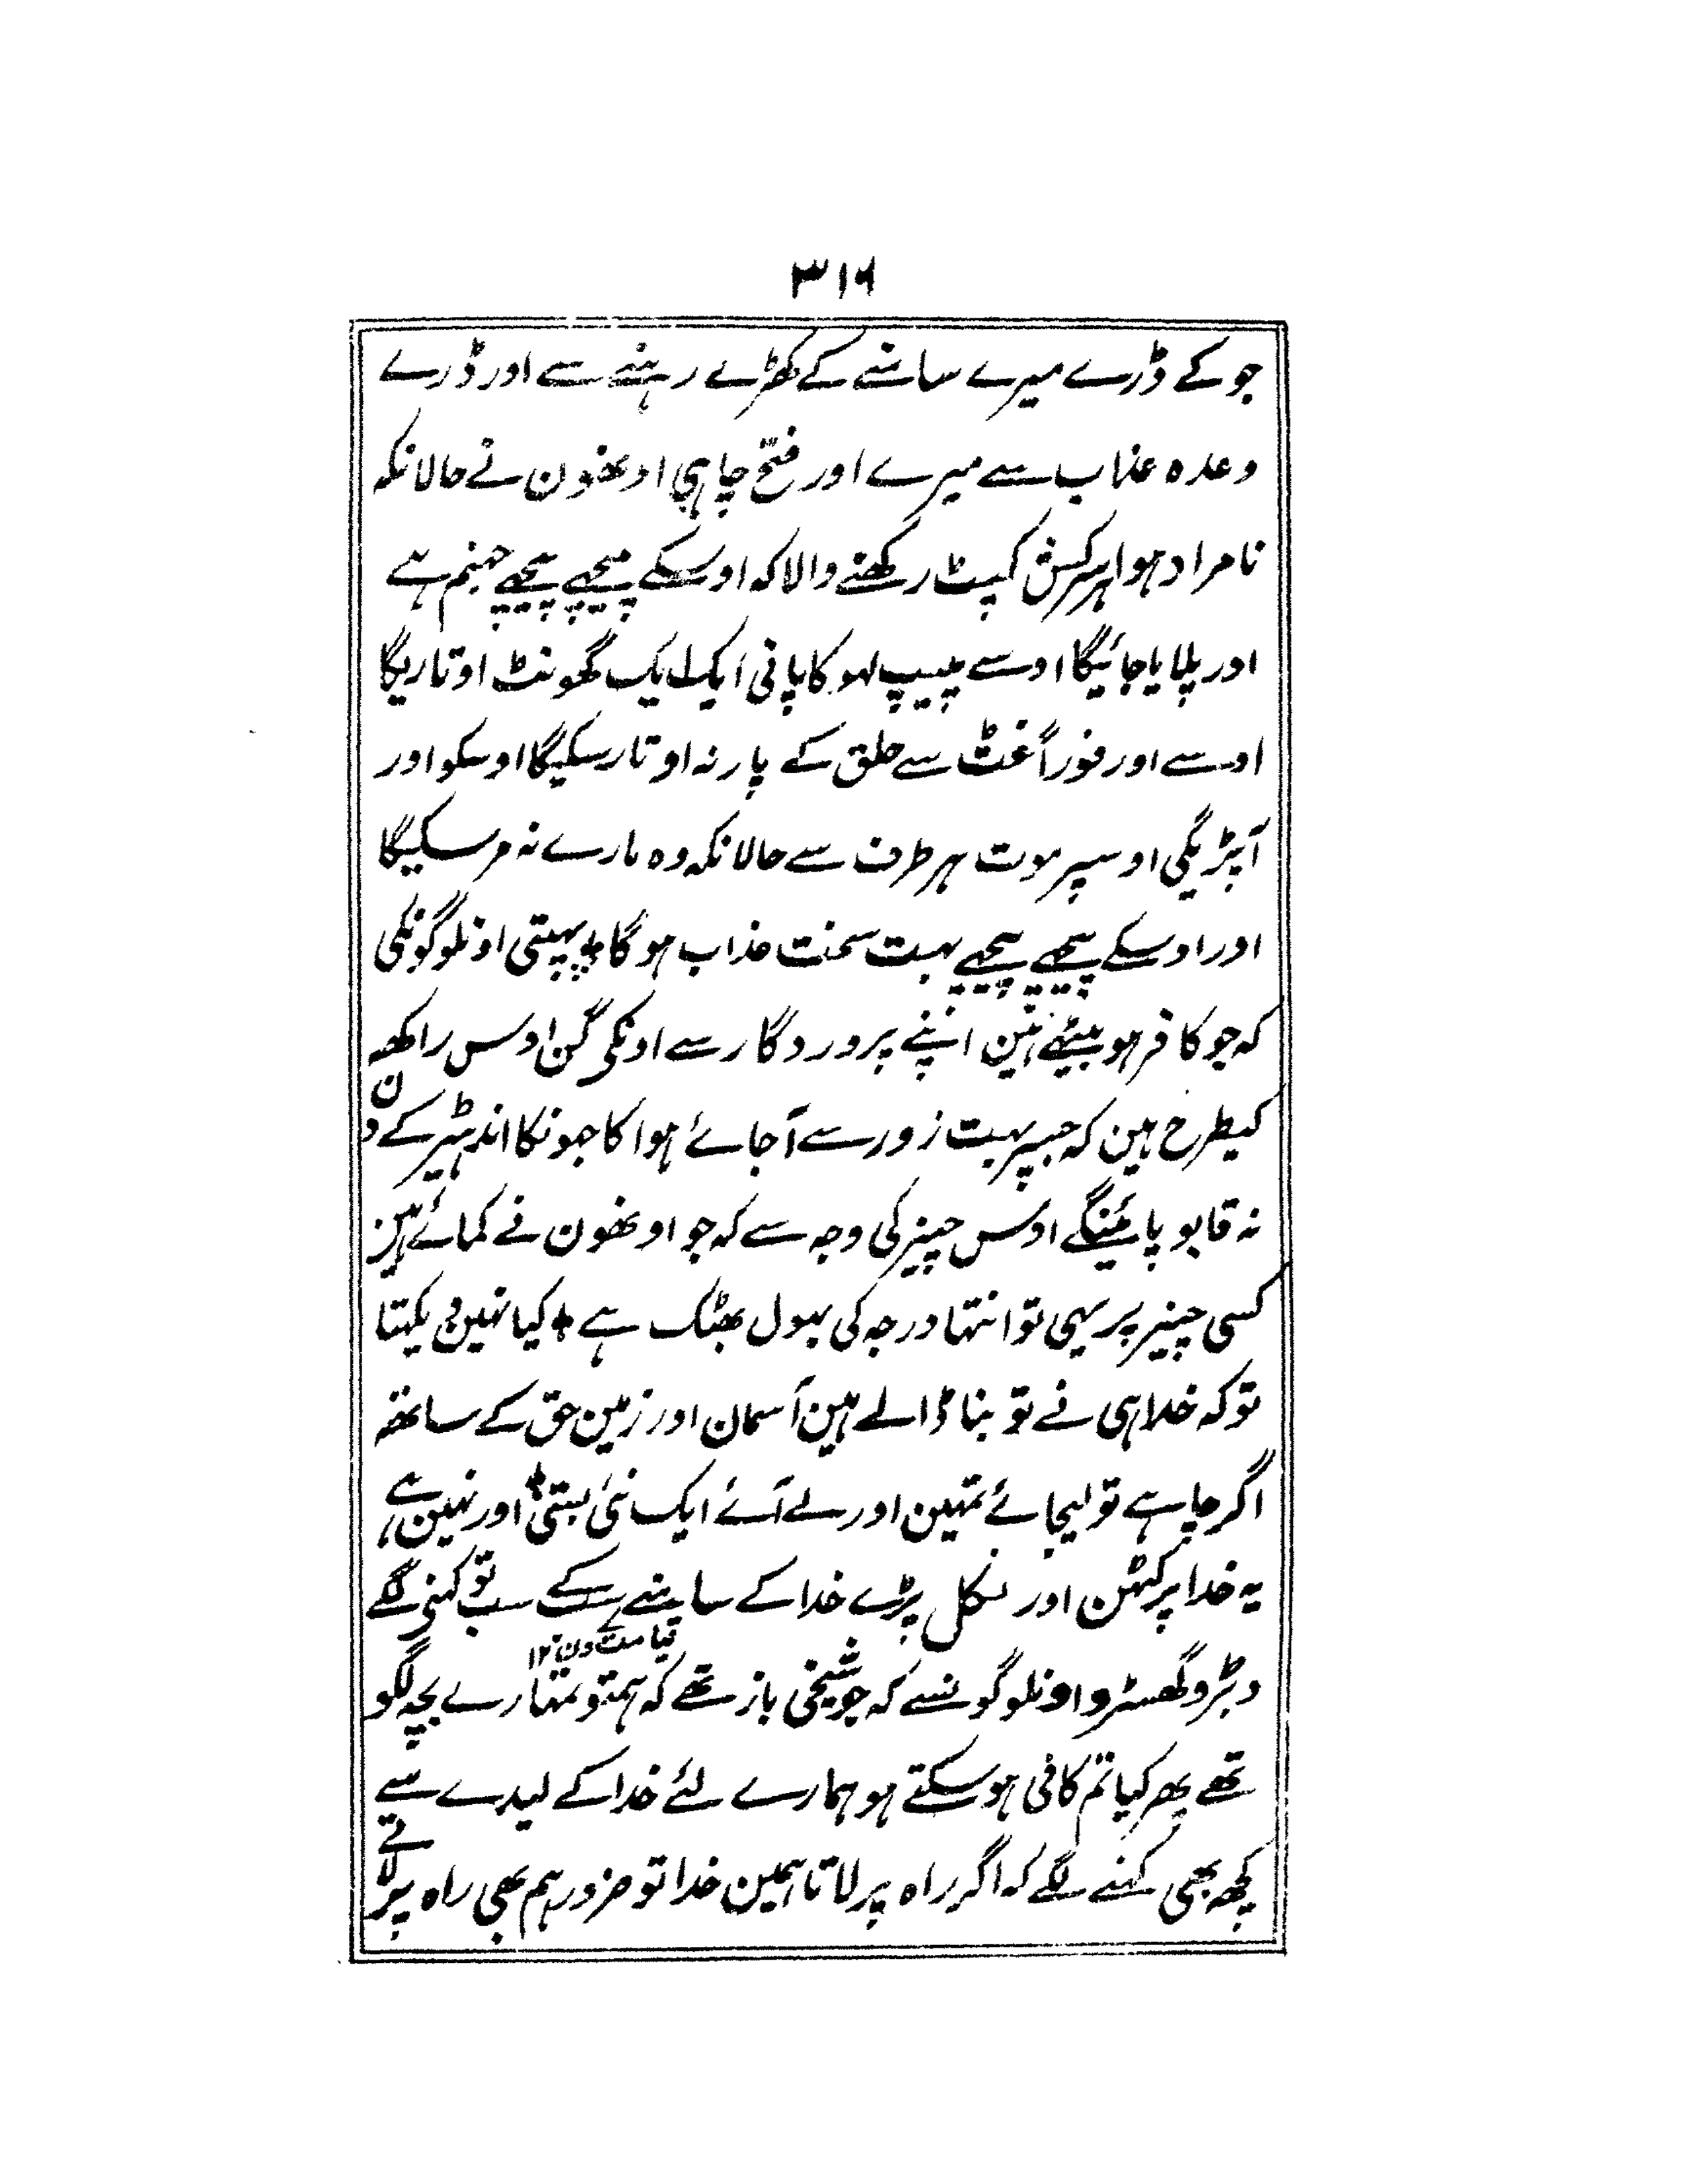 ۳۱۶
جو کے ڈرے میرے سامنے کے کھڑے رہنے سے اور ڈرے
وعدہ عذاب سے میرے اور فتح چاہی اوبھون نے حالانکہ
نامراد ہوا ہر سرکش کپٹ رکھنے والا کہ اوسکے پیچھے پیچھے جہنم ہے
اور پلایا جائیگا اوسے پیپ لہو کا پانی ایک ایک گھونٹ اوتاریگا
اوسے اور فوراً غٹ سے حلق کے پار نہ اوتار سکیگا اوسکو اور
آپڑیگی اوسپر موت ہر طرف سے حالانکہ وہ مارے نہ مر سکیگا
اور اوسکے پیچھے پیچھے بہت سخت عذاب ہوگا پہبتی اونلوگونکی
کہ جو کافر ہو بیٹھے ہین اپنے پروردگار سے اونکی گن اوس راکھہ
کیطرح ہین کہ جسپر بہت زور سے آجائے ہوا کا جھونکا اندہیر کے دن
نہ قابو پائینگے اوس چیز کی وجہ سے کہ جو اوبھون نے کمائے ہین
کسی چیز پر یہی تو انتہا درجہ کی بہول بھٹک ہے کیا نہین دیکہتا
تو کہ خدا ہی نے تو بنا ڈالے ہین آسمان اور زمین حق کے ساتھہ
اگر چاہے تو لیجائے تمہین اور لے آئے ایک نئی بستی اور نہین ہے
یہ خدا پر کٹہن اور نکل پڑے خدا کے سامنے سب کے سب تو کہنے لگے
قیامت دن ۱۲
دبڑو گھسڑو اونلوگونسے کہ جو شیخی باز تھے کہ ہمتو تمہارے پیچہ لگو
تھے پھر کیا تم کافی ہو سکتے ہو ہمارے لئے خدا کے لیدے سے
کچھ بھی کہنے لگے کہ اگر راہ پر لاتا ہمین خدا تو ضرور ہم بھی راہ پر لاتے